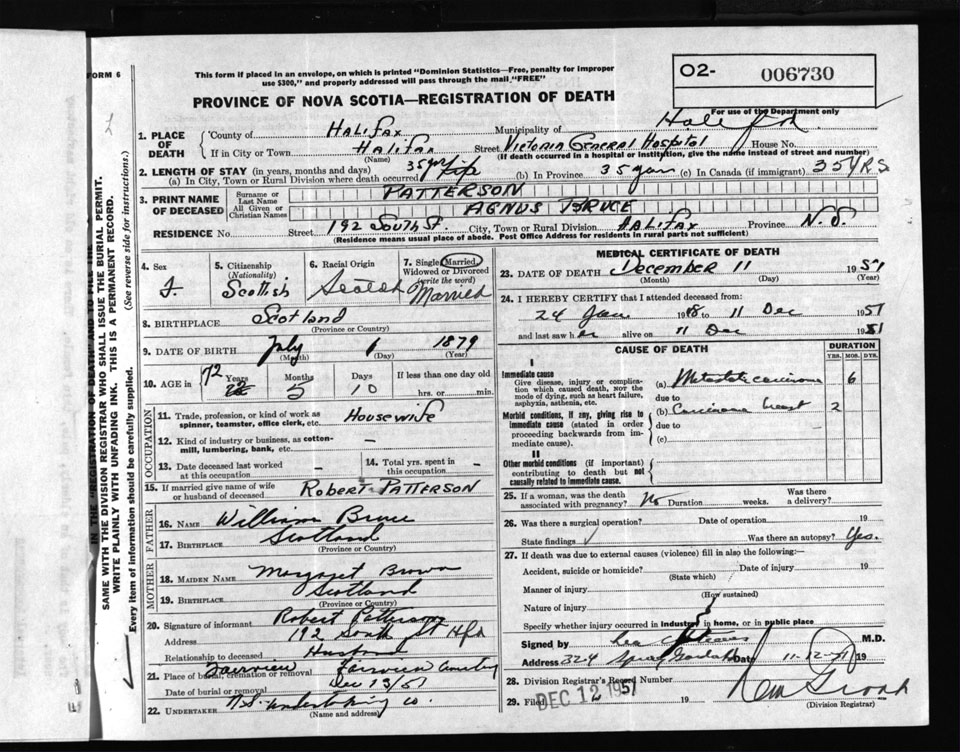 FORM 6
This form if placed in an envelope, on which is printed "Dominion Statistics—Free, penalty for improper
use $300," and properly addressed will pass through the mail "FREE"
O2- 006730
PROVINCE OF NOVA SCOTIA—REGISTRATION OF DEATH
For use of the Department only
1. PLACE OF DEATH County of Halifax Municipality of Halifax
If in City or Town Halifax Street Victoria General Hospital House No.
(Name) (If death occurred in a hospital or institution, give the name instead of street and number)
2. LENGTH OF STAY (in years, months and days)
(a) In City, Town or Rural Division where death occurred 35 yrs (b) In Province 35 years (c) In Canada (if immigrant) 35 YRS
3. PRINT NAME OF DECEASED Surname or Last Name PATTERSON
All Given or Christian Names AGNUS BRUCE
RESIDENCE No. Street 192 South St. City, Town or Rural Division HALIFAX Province N.S.
(Residence means usual place of abode. Post Office Address for residents in rural parts not sufficient)
4. Sex F.
5. Citizenship (Nationality) Scottish
6. Racial Origin Scotch
7. Single, Married, Widowed or Divorced (write the word) Married
8. BIRTHPLACE Scotland
(Province or Country)
9. DATE OF BIRTH July 1 1879
(Month) (Day) (Year)
10. AGE in 72 Years 5 Months 10 Days If less than one day old
hrs. or min.
OCCUPATION
11. Trade, profession, or kind of work as
spinner, teamster, office clerk, etc. Housewife
12. Kind of industry or business, as cotton-
mill, lumbering, bank, etc. —
13. Date deceased last worked
at this occupation –
14. Total yrs. spent in
this occupation –
15. If married give name of wife
or husband of deceased Robert PATTERSON
FATHER
16. NAME William Bruce
17. BIRTHPLACE Scotland
(Province or Country)
MOTHER
18. MAIDEN NAME Margaret Brown
19. BIRTHPLACE Scotland
(Province or Country)
20. Signature of informant Robert Patterson
Address 192 South St Hfx
Relationship to deceased Husband
21. Place of burial, cremation or removal Fairview Fairview Cemetery
Date of burial or removal Dec 13/51
22. UNDERTAKER N.S. Undertaking Co.
(Name and address)
MEDICAL CERTIFICATE OF DEATH
23. DATE OF DEATH December 11 1951
(Month) (Day) (Year)
24. I HEREBY CERTIFY that I attended deceased from:
24 Jan 1948 to 11 Dec 1951
and last saw her alive on 11 Dec 1951
CAUSE OF DEATH
DURATION
YRS. MOS. DYS.
I
Immediate cause
Give disease, injury or complica-
tion which caused death, NOT the
mode of dying, such as heart failure,
asphyxia, asthenia, etc.
(a) Metastatic carcinoma 6
due to
Morbid conditions, if any, giving rise to
immediate cause (stated in order
proceeding backwards from im-
mediate cause).
(b) Carcinoma breast 2
due to
(c)
II
Other morbid conditions (if important)
contributing to death but not
causally related to immediate cause.
25. If a woman, was the death
associated with pregnancy? No Duration weeks. Was there
a delivery?
26. Was there a surgical operation? Date of operation 19
State findings Was there an autopsy? Yes.
27. If death was due to external causes (violence) fill in also the following:—
Accident, suicide or homicide? Date of injury 19
(State which)
Manner of injury
(How sustained)
Nature of injury
Specify whether injury occurred in industry, in home, or in public place
Signed by M.D.
Address 324 Spring Garden Rd Date 11-12-51 19
28. Division Registrar's Record Number
29. Filed DEC 12 1951
(Division Registrar)
IN THE "REGISTRATION OF DEATH" AND TO THE
SAME WITH THE DIVISION REGISTRAR WHO SHALL ISSUE THE BURIAL PERMIT.
WRITE PLAINLY WITH UNFADING INK. THIS IS A PERMANENT RECORD.
Every item of information should be carefully supplied. (See reverse side for instructions.)